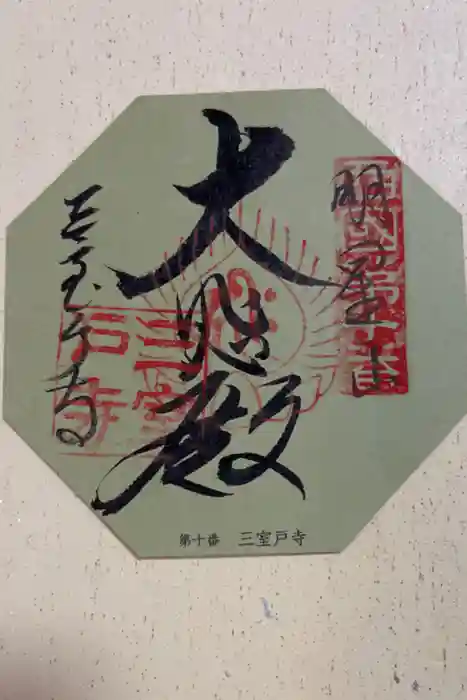 明星山
大悲殿
三室戸寺
三室戸寺
第十番 三室戸寺